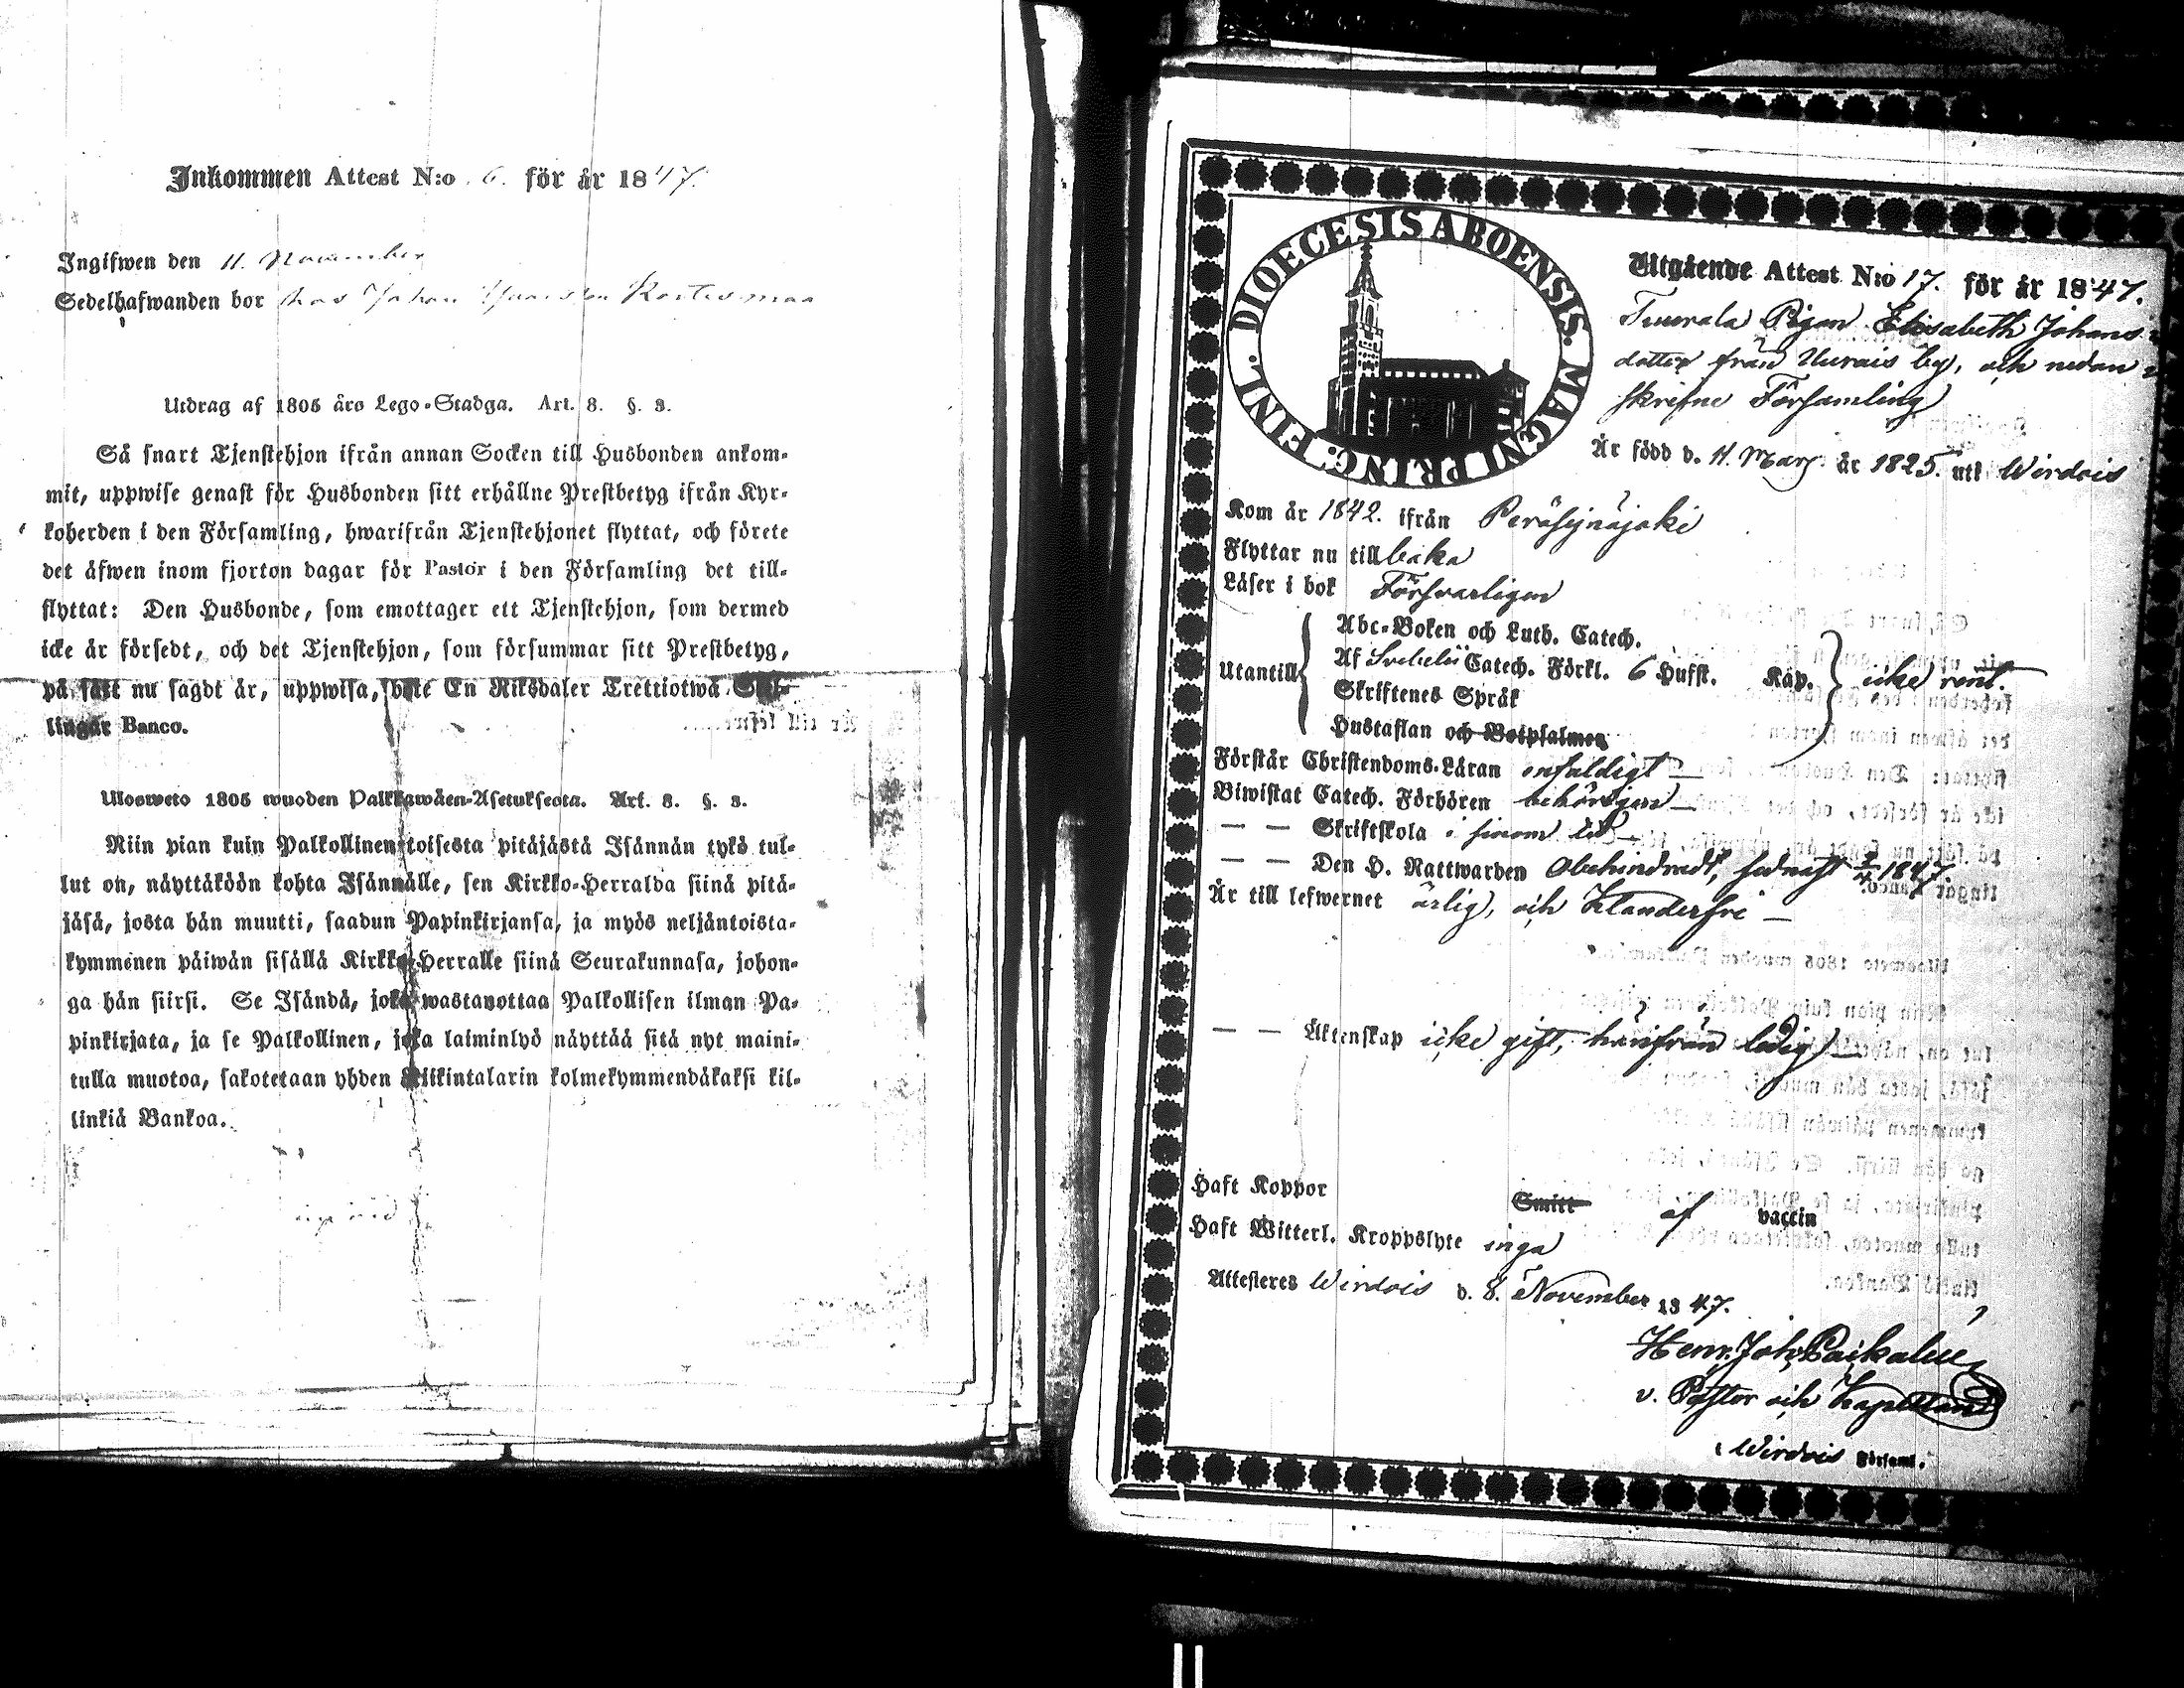 Inkommen Attest N:o 6. för år 1847.
Ingifwen den 11. November
Sedelhafwanden bor hos Johan
Utdrag af 1805 års Lego-Stadga. Art. 8. §. 3.
Så snart Tjenstehjon ifrån annan Socken till Husbonden ankom-
mit, uppwise genast för Husbonden sitt erhållne Prestbetyg ifrån Kyr-
koherden i den Församling, hwarifrån Tjenstehjonet flyttat, och förete
det äfwen inom fjorton dagar för Pastor i den Församling det till-
flyttat: Den Husbonde, som emottager ett Tjenstehjon, som dermed
icke är försedt, och det Tjenstehjon, som försummar sitt Prestbetyg,
på sätt nu sagdt är, uppwisa, böte En Riksdaler Trettiotwå Skil-
lingar Banco.
Ulosweto 1805 wuoden Palkkawäen-Asetuksesta. Art. 8. §. 3.
Niin pian kuin Palkollinen toisesta pitäjästä Isännän tykö tul-
lut on, näyttäköön kohta Isännälle, sen Kirkko-Herralda siinä pitä-
jäsä, josta hän muutti, saadun Papinkirjansa, ja myös neljäntoista-
kymmenen päiwän sisällä Kirkko-Herralle siinä Seurakunnasa, johon-
ga hän siirsi. Se Isändä, joka wastanottaa Palkollisen ilman Pa-
pinkirjata, ja se Palkollinen, joka laiminlyö näyttää sitä nyt maini-
tulla muotoa, sakotetaan yhden Riikintalarin kolmekymmendäkaksi kil-
linkiä Bankoa.
DIOECESIS ABOENSIS. MAGNI PRINC. FINL.
Utgående Attest N:o 17. för år 1847.
Tuurala Pigan Elisabeth Johans
dotter från Uurais by, och nedan
skrifne Församling
Är född d. 11. Mars. år 1825. uti Wirdois
Kom år 1842. ifrån Peräsejnäjoki
Flyttar nu tillbaka
Läser i bok Försvarligen
Utantill
Abc-Boken och Luth. Catech.
Af Svebelii Catech. Förkl. 6 Hufst. Kap.
Skriftenes Språk
Hustaflan och Botpsalmen
icke rent.
Förstår Christendoms-Läran enfaldigt —
Biwistat Catech. Förhören behörigen —
— — Skriftskola i sinom tid —
— — Den H. Nattwarden Obehindradt, sednast 1847.
Är till lefwernet ärlig, och Klanderfri —
— — Äktenskap icke gift, härifrån ledig —
Haft Koppor Smitt af vaccin
Haft Witterl. Kroppslyte inga
Attesteres Wirdois d. 8. November 1847.
Henr. Joh. Paikalen
v. Pastor och Kapellan
i Wirdois Församl.